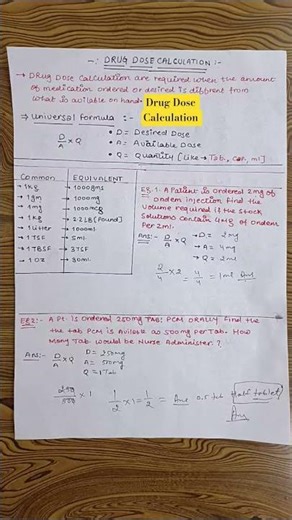 —: DRUG DOSE CALCULATION :—
→ DRug Dose Calculation are required when the amount
of medication ordered or desired is different from
what is avilable on hand.
Drug Dose
Calculation
⇒ universal Formula :-
D/A x Q
• D = Desired Dose
• A = Available Dose
• Q = Quantity [Like → Tab, Cap, ml]
Common | EQUIVALENT
1 Kg | 1000gms
1 gm | 1000mg
1 mg | 1000mcg
1 Kg | 2.2 LB (Pound)
1 Liter | 1000ml
1 TSF | 5ml
1 TBSF | 3TSF
1 OZ | 30ml
EX:1 A Patient is ordered 2mg of
ondem injection find the
volume required if the stock
solutions contain 4mg of ondem
Per 2ml.
Ans:- D/A x Q
→ D = 2mg
→ A = 4mg
→ Q = 2ml
2/4 x 2 = 4/4 = 1ml Ans
EX2:- A Pt. is ordered 250mg TAB: PCM ORALLY Find the
the tab PCM is Avilable as 500mg Per Tab. How
many Tab would be Nurse Administer.?
Ans:- D/A x Q
D = 250mg
A = 500mg
Q = 1 Tab
250/500 x 1 1/2 x 1 = 1/2 = Ans 0.5 tab Half tablet
Ans